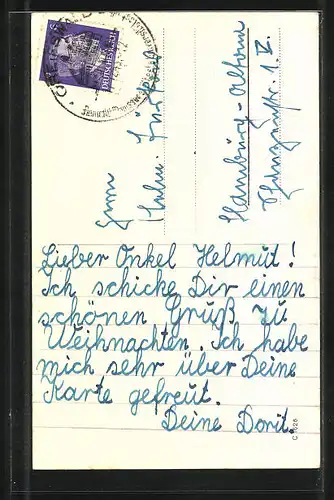 DEUTSCHES REICH
Herrn
Hamburg-Altona
Lieber Onkel Helmut!
Ich schicke Dir einen
schönen Gruß zu
Weihnachten. Ich habe
mich sehr über Deine
Karte gefreut.
Deine Dorit.